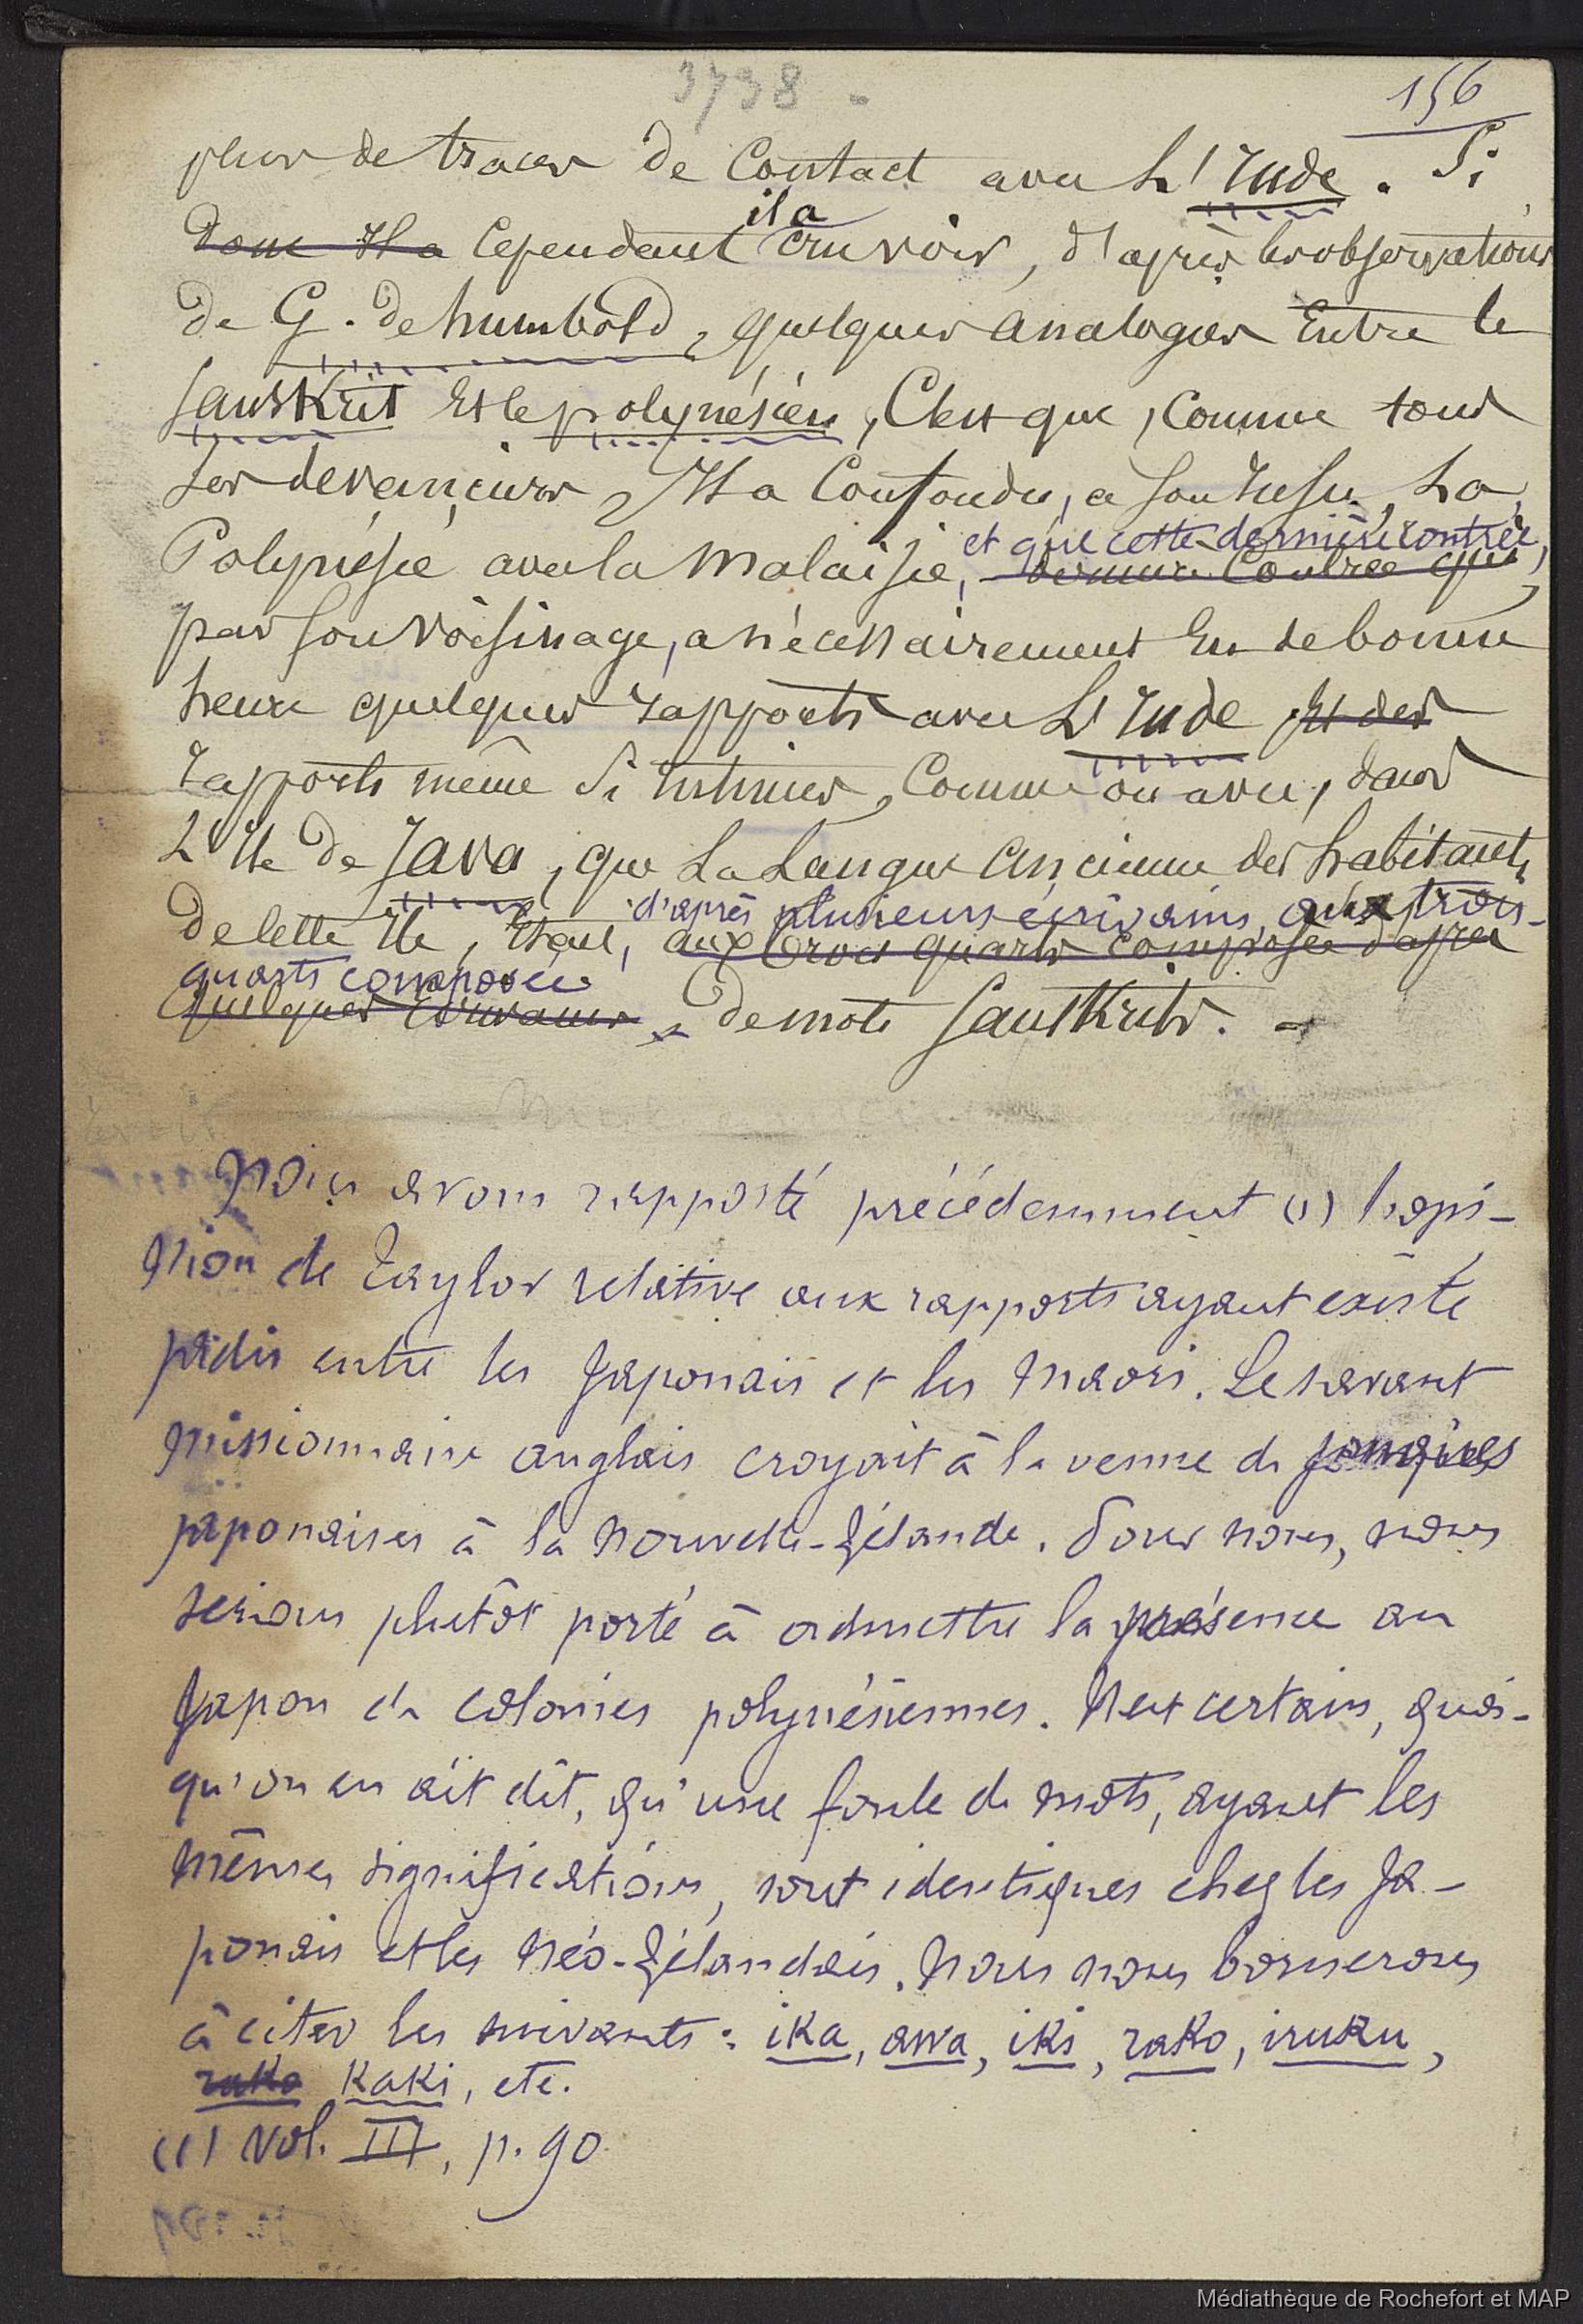 3738 -
156
plus de traces de Contact avec L'Inde. Si
donc Il a Cependant il a cru voir, d'après les observations
de G. de humbold, quelques analogies Entre le
Sanskrit Et le polynésien, C'est que, comme tous
ses devanciers, Il a Confondu, a son insu, La
Polynésie avec la Malaisie, et que cette dernière contrée,
dernière Contrée qui
par son voisinage, a nécessairement Eu de bonne
heure quelques rapports avec L'Inde Et des
rapports même si intimes, Comme on a vu, dans
L'Ile de Java, que La Langue ancienne des habitants
d'après plusieurs écrivains, aux trois-
De Cette Ile, Etait, aux trois quarts composée d'après
quarts composée
quelques Ecrivains, De mots Sanskrits. -
Nous avons rapporté précédemment (1) l'opi-
nion de Taylor relative aux rapports ayant existé
jadis entre les Japonais et les Maori. Le savant
missionnaire anglais croyait à la venue de jonques
japonaises à la Nouvelle-Zélande. Pour nous, nous
serions plutôt porté à admettre la présence au
Japon de colonies polynésiennes. Il est certain, quoi-
qu'on en ait dit, qu'une foule de mots, ayant les
mêmes significations, sont identiques chez les Ja-
ponais et les Néo-Zélandais. Nous nous bornerons
à citer les suivants : ika, awa, iki, rako, iruku,
rako kaki, etc.
(1) Vol. III, p. 90
Médiathèque de Rochefort et MAP